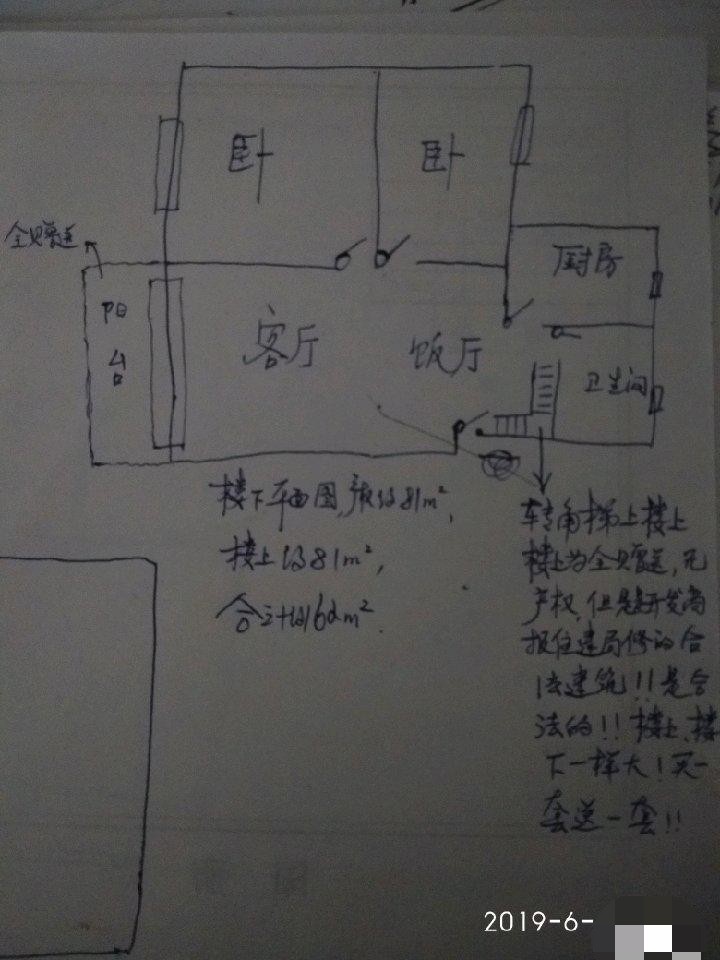 卧
卧
全赠送
厨房
阳
台
客厅
饭厅
卫生间
楼下平面图,产权约81m²,
楼上约81m²,
合计约162m².
转角梯上楼上
楼上为全赠送,无
产权,但是开发商
报住建局修的合
法建筑!!是合
法的!!楼上、楼
下一样大!买一
套送一套!!
2019-6-